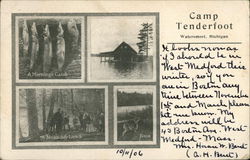 Camp
Tenderfoot
Watersmeet, Michigan
It looks now as
if I should be in
West Medford this
winter, so if you
are in Boston any
time between November
1st and March please
let me know. My
address will be
43 Boston Ave. West
Medford - Mass.
Mrs. Horace W. Bent
(A. H. Bent)
A Morning's Catch
10/11/06